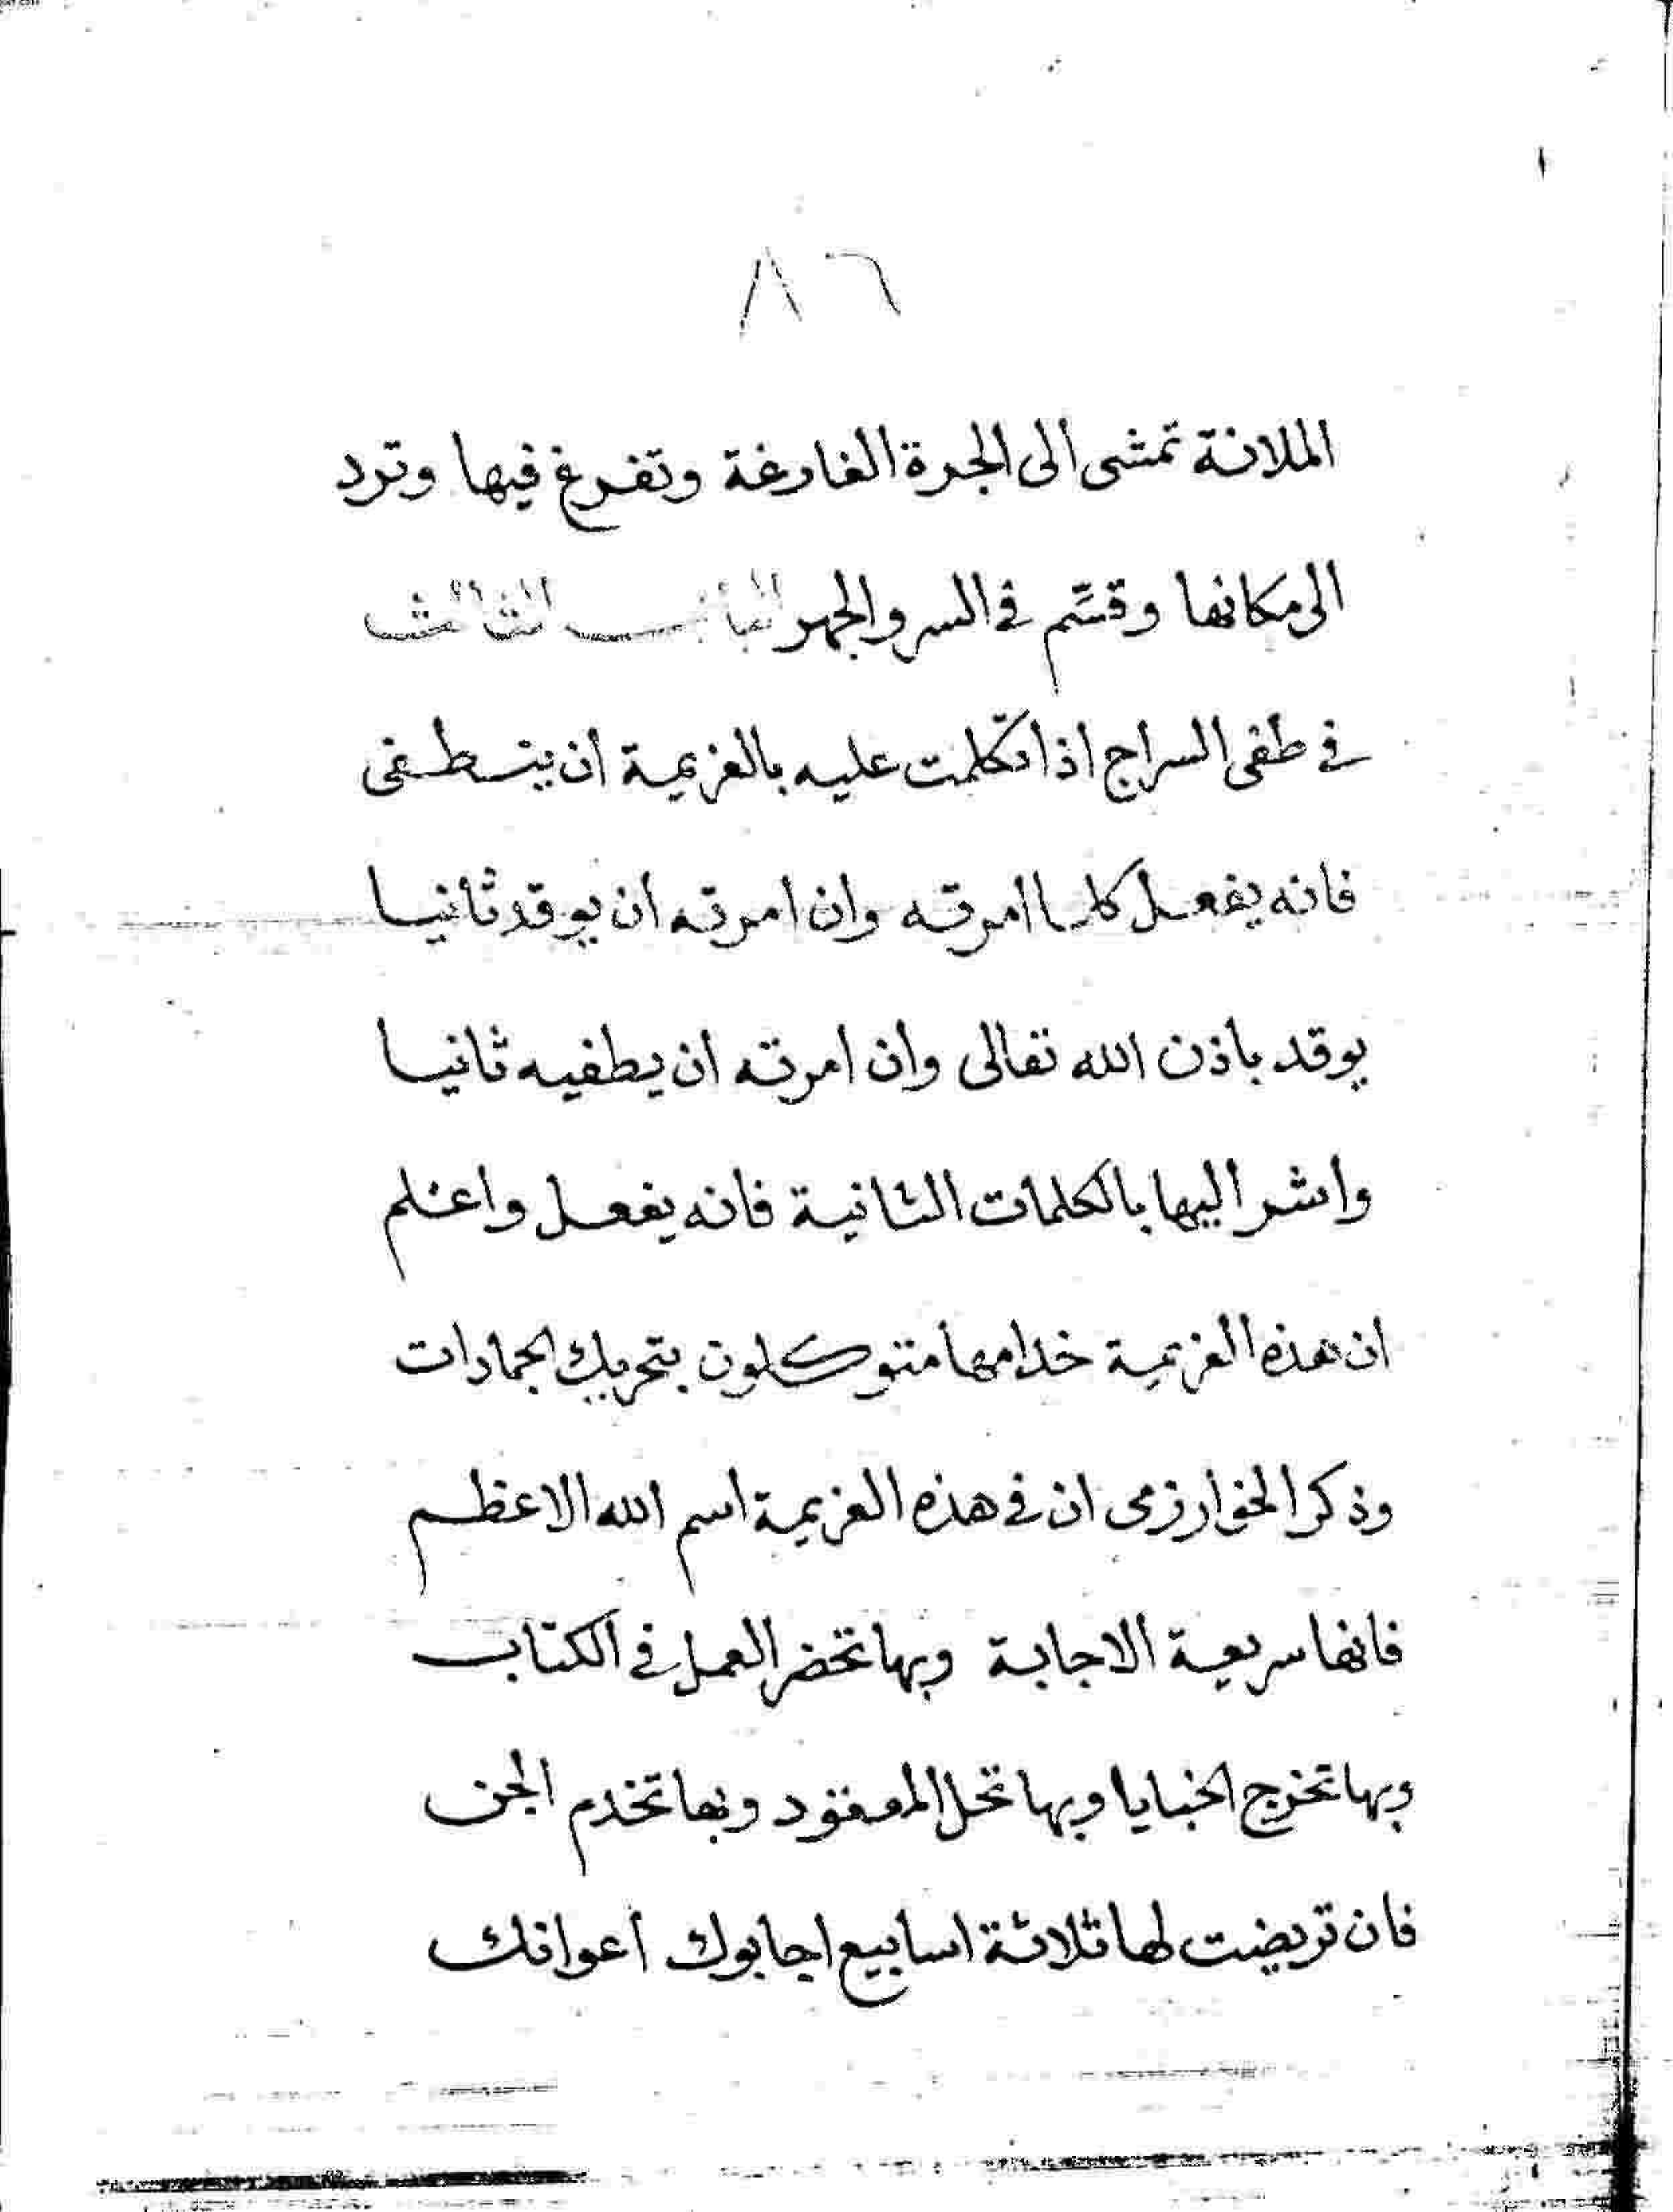 ٨٦
الملانة تمشى الى الجرة الفارغة وتفرغ فيها وترد
الى مكانها وقسّم فى السر والجهر الباب الثالث
فى طفى السراج اذا تكلمت عليه بالعزيمة ان ينطفى
فانه يفعل كلما امرته وان امرته ان يوقد ثانيا
يوقد باذن الله تعالى وان امرته ان يطفيه ثانيا
واشر اليها بالكلمات الثانية فانه يفعل واعلم
ان هذه العزيمة خدامها متوكلون بتحريك الجمادات
وذكر الخوارزمى ان فى هذه العزيمة اسم الله الاعظم
فانها سريعة الاجابة وبها تحضر العمل فى الكتاب
وبها تخرج الخبايا وبها تحل المعقود وبها تخدم الجن
فان تريضت لها ثلاثة اسابيع اجابوك أعوانك